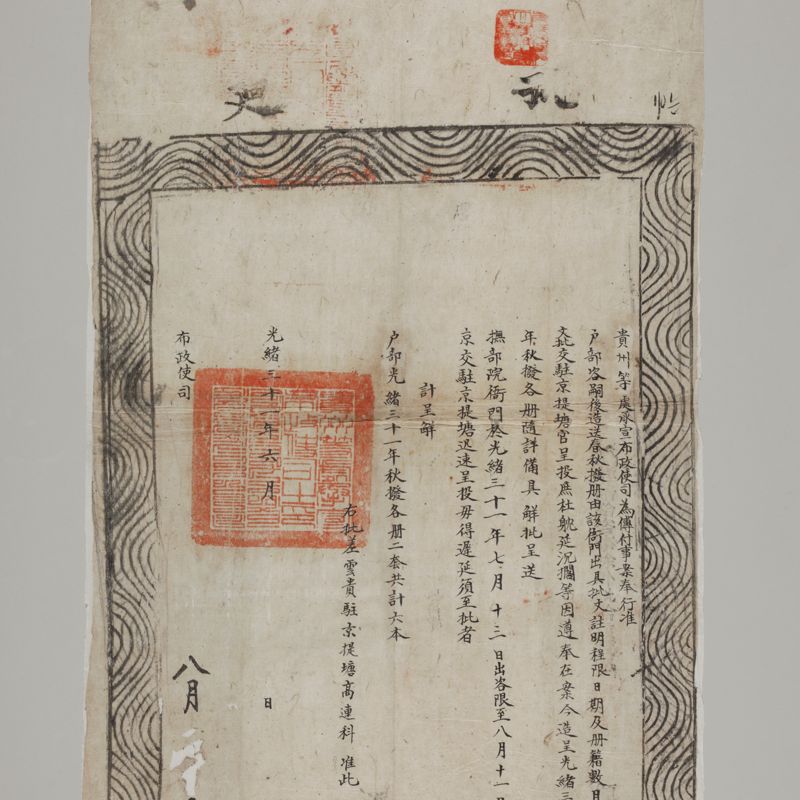 批文
貴州等處承宣布政使司為傳付事案奉行准
户部咨嗣後造送春秋撥册由該衙門出具批文註明程限日期及册籍數目
文批交駐京提塘官呈投以杜躭延沉擱等因遵奉在案今造呈光緒三
年秋撥各册隨詳備具觧批呈送
撫部院衙門於光緒三十一年七月十三日出咨限至八月十一日
京交駐京提塘迅速呈投毋得遲延須至批者
計呈觧
户部光緒三十一年秋撥各册二套共計六本
右批差雲貴駐京提塘高連科准此
光緒三十一年六月 日
布政使司
八月